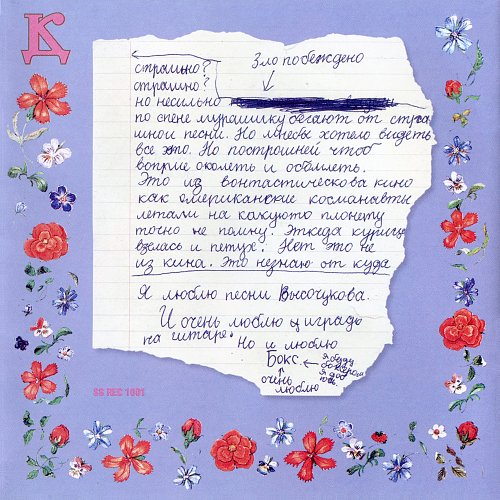 К
Зло побеждено
страшно?
страшно?
но несильно
по спене мурашику бегают от стра
шной песни. Но мнебы хотело видеть
все это. Но построшней чтоб
вопще околеть и обомлеть.
Это из вонтастическова кино
как омериканские косманавты
летали на какуюто плонету
точно не помну. Эткедя курица
взелась и петух. Нет это не
из кина. Это незнаю от куда
Я люблю песни Высочукова.
И очень люблю играть
на гитаре. Но и люблю
Бокс
я буду
боксиром
я доб
юсь.
очень
люблю
SS REC 1001